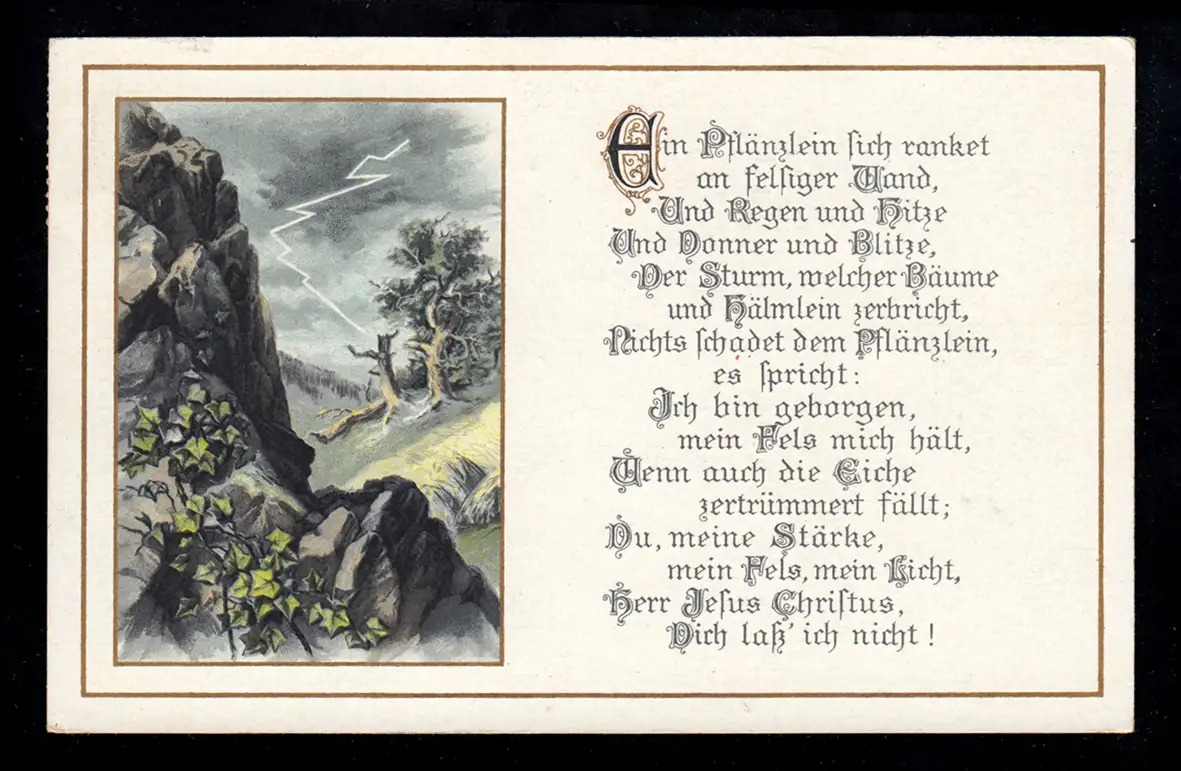 Ein Pflänzlein sich ranket
an felsiger Wand,
Und Regen und Hitze
Und Donner und Blitze,
Der Sturm, welcher Bäume
und Hälmlein zerbricht,
Nichts schadet dem Pflänzlein,
es spricht:
Ich bin geborgen,
mein Fels mich hält,
Wenn auch die Eiche
zertrümmert fällt;
Du, meine Stärke,
mein Fels, mein Licht,
Herr Jesus Christus,
Dich laß' ich nicht!